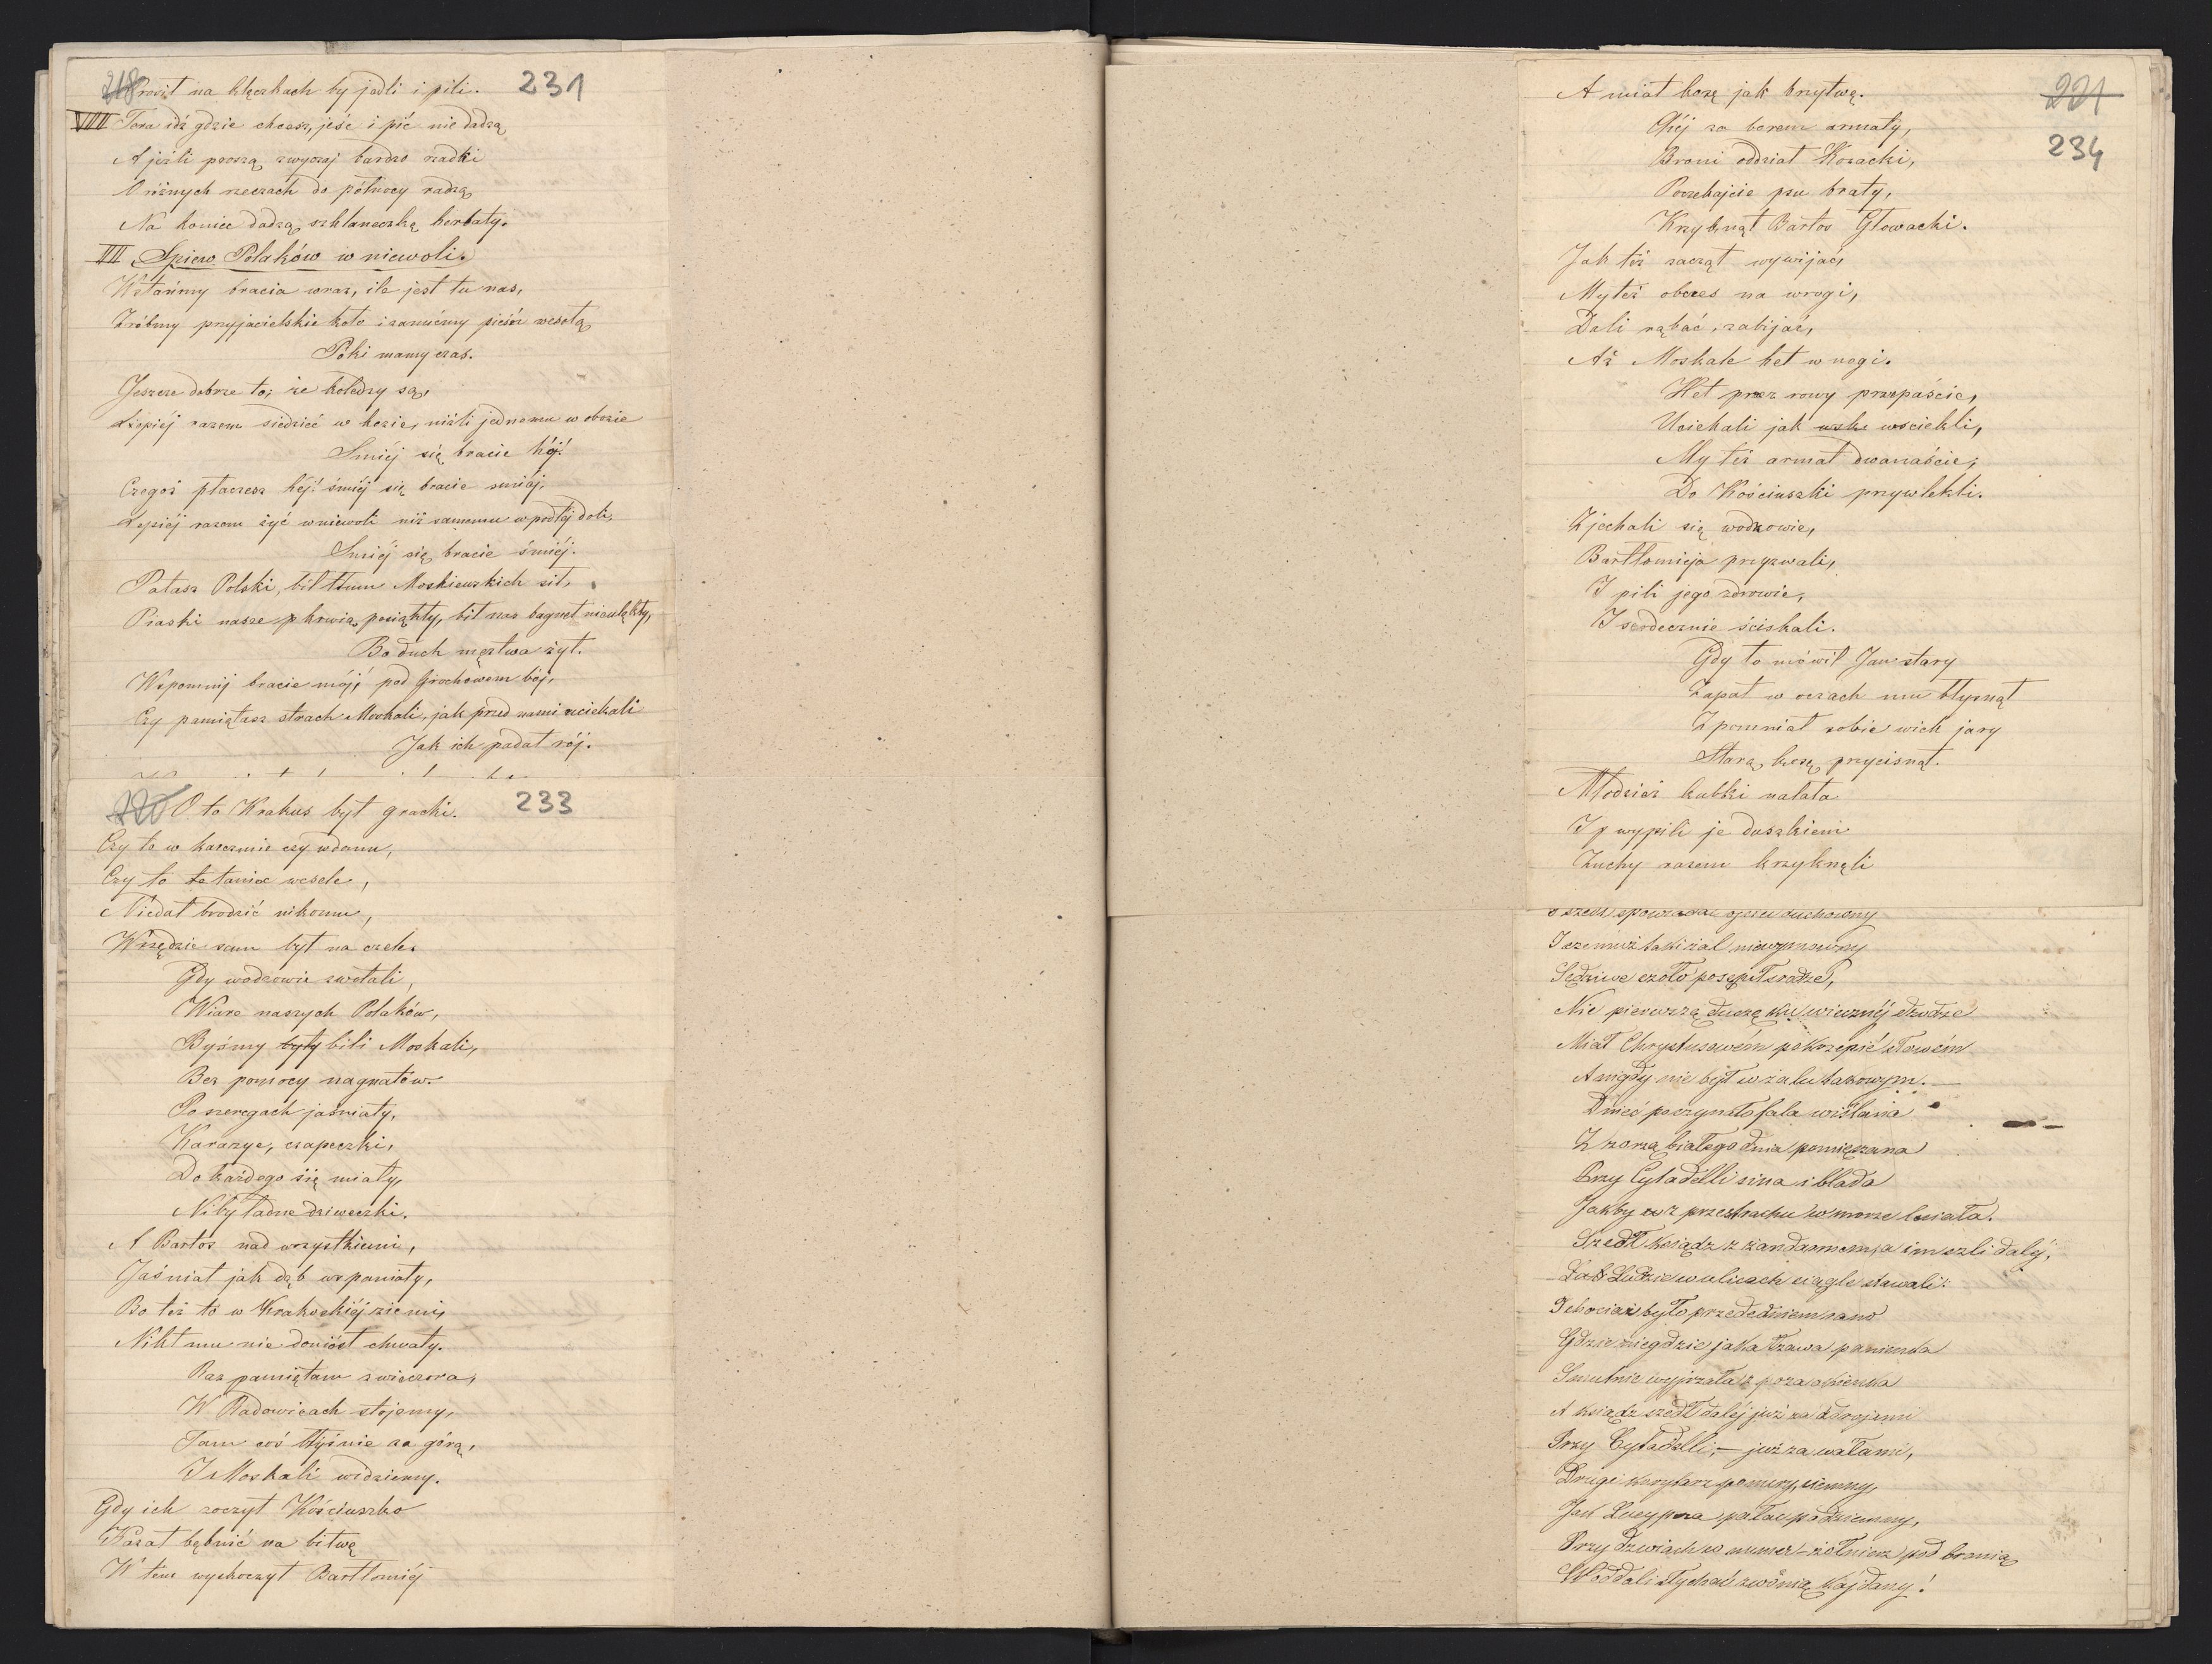 218 Prosił na klęczkach by jedli i pili. 231
VIII Tera idź gdzie chcesz, jeść i pić nie dadzą
A jeźli proszą zwyczaj bardzo rzadki
O różnych rzeczach do północy radzą
Na koniec dadzą szklaneczkę herbaty.
Spiew Polaków w niewoli.
Wstańmy bracia wraz, ile jest tu nas,
Zróbmy przyjacielskie koło i zanućmy pieśń wesołą
Póki mamy czas.
Jeszcze dobrze to, że koledzy są,
Lepiéj razem siedzieć w kozie, niżli jednemu w obozie
Smiéj się bracie héj!
Czegoż płaczesz héj! śmiéj się bracie smiéj,
Lepiéj razem żyć w niewoli niż samemu w podłéj doli,
Smiéj się bracie śmiéj.
Pałasz Polski, bił tłum Moskiewskich sił,
Piaski nasze krwią posiąkły, bił nas bagnet nieulękły,
Bo duch męztwa żył.
Wspomnij bracie mój, pod Grochowem bój,
Czy pamiętasz strach Moskali, jak przed nami uciekali
Jak ich padał rój.
220 O to Krakus był gracki. 233
Czy to w karczmie czy w domu,
Czy to to taniec wesele,
Niedał brodzić nikomu,
Wszędzie sam był na czele.
Gdy wodzowie zwołali,
Wiare naszych Polaków,
Byśmy były bili Moskali,
Bez pomocy magnatów.
Po szeregach jaśniały,
Karazye, czapeczki,
Do każdego się miały,
Niby ładne dziweczki.
A Bartos nad wszystkiemi,
Jaśniał jak dąb wspaniały,
Bo też to w Krakoskiéj ziemi,
Nikt mu nie doniósł chwały.
Raz pamiętam z wieczora,
W Radowicach stojemy,
Tam coś błyśnie za górą,
I Moskali widziemy.
Gdy ich zoczył Kościuszko
Kazał bębnić na bitwę
W tém wyskoczył Bartłomiéj
A miał kosę jak brzytwę. 221
234
Chéj za borem armaty,
Broni oddział Kozacki,
Poczekajcie psu braty,
Krzyknął Bartos Głowacki.
Jak też zaczął wywijać,
My też obces na wrogi,
Dali rąbać, zabijać,
Aż Moskale het w nogi.
Het przez rowy przepaście,
Uciekali jak wściekli,
My też armat dwanaście,
Do Kościuszki przywlekli.
Zjechali się wodzowie,
Bartłomieja przyzwali,
I pili jego zdrowie,
I serdecznie ściskali.
Gdy to mówił Jan stary
Zapał w oczach mu błysnął
Zpomniał sobie wiek jary
Starą kosę przycisnął.
Młodzież kubki nalała
I wypili je duszkiem
Zuchy razem krzyknęli
Szedł spowiadać ojciec duchowny
I czemuż taki żal niewymowny
Sędziwe czoło posępił srodze,
Nie pierwszą duszę ku wiecznéj drodze
Miał Chrystusowém pokrzepić słowém
A nigdy nie był w żalu takowym.
Dnieć poczynało fala wiślana
Z zorzą białego dnia pomięszana
Przy Cytadelli sina i blada
Jakby z przestrachu w morze leciała.
Szedł ksiądz z żandarmem, a im szli daléj,
Ludzie w ulicach ciągle stawali:
I chociaż było przededniem rano
Gdzie niegdzie jaka łzawa panienka
Smutnie wyjrzała z poza okienka
A ksiądz szedł daléj już za zdrojami
Przy Cytadelli, – już za wałami,
Drugi korytarz ponury, ciemny,
Jak Lucypera pałac podziemny,
Przy drzwiach w numer – żołnierz pod bronią
W oddali słychać dzwonią kajdany!